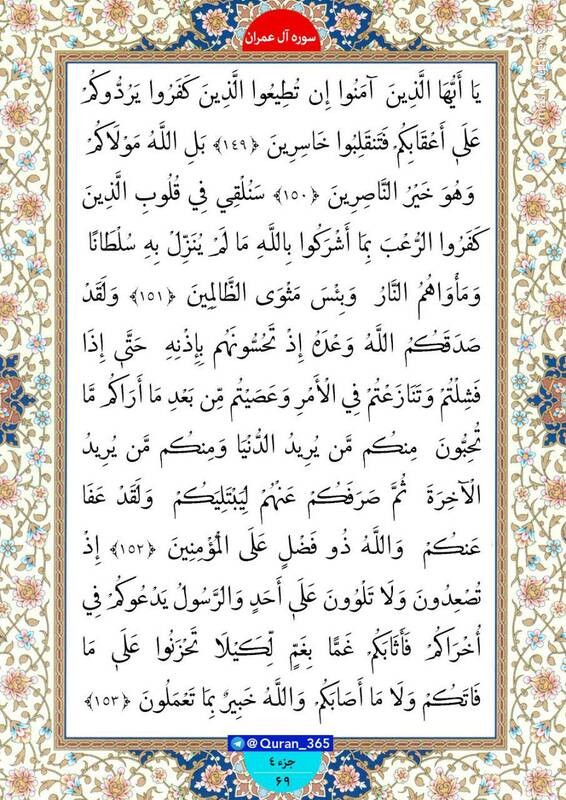 سوره آل عمران
يَا أَيُّهَا الَّذِينَ آمَنُوا إِن تُطِيعُوا الَّذِينَ كَفَرُوا يَرُدُّوكُمْ
عَلَىٰ أَعْقَابِكُمْ فَتَنقَلِبُوا خَاسِرِينَ ﴿١٤٩﴾ بَلِ اللَّهُ مَوْلَاكُمْ
وَهُوَ خَيْرُ النَّاصِرِينَ ﴿١٥٠﴾ سَنُلْقِي فِي قُلُوبِ الَّذِينَ
كَفَرُوا الرُّعْبَ بِمَا أَشْرَكُوا بِاللَّهِ مَا لَمْ يُنَزِّلْ بِهِ سُلْطَانًا
وَمَأْوَاهُمُ النَّارُ وَبِئْسَ مَثْوَى الظَّالِمِينَ ﴿١٥١﴾ وَلَقَدْ
صَدَقَكُمُ اللَّهُ وَعْدَهُ إِذْ تَحُسُّونَهُم بِإِذْنِهِ حَتَّىٰ إِذَا
فَشِلْتُمْ وَتَنَازَعْتُمْ فِي الْأَمْرِ وَعَصَيْتُم مِّن بَعْدِ مَا أَرَاكُم مَّا
تُحِبُّونَ مِنكُم مَّن يُرِيدُ الدُّنْيَا وَمِنكُم مَّن يُرِيدُ
الْآخِرَةَ ثُمَّ صَرَفَكُمْ عَنْهُمْ لِيَبْتَلِيَكُمْ وَلَقَدْ عَفَا
عَنكُمْ وَاللَّهُ ذُو فَضْلٍ عَلَى الْمُؤْمِنِينَ ﴿١٥٢﴾ إِذْ
تُصْعِدُونَ وَلَا تَلْوُونَ عَلَىٰ أَحَدٍ وَالرَّسُولُ يَدْعُوكُمْ فِي
أُخْرَاكُمْ فَأَثَابَكُمْ غَمًّا بِغَمٍّ لِّكَيْلَا تَحْزَنُوا عَلَىٰ مَا
فَاتَكُمْ وَلَا مَا أَصَابَكُمْ وَاللَّهُ خَبِيرٌ بِمَا تَعْمَلُونَ ﴿١٥٣﴾
@Quran_365
جزء ٤
٦٩